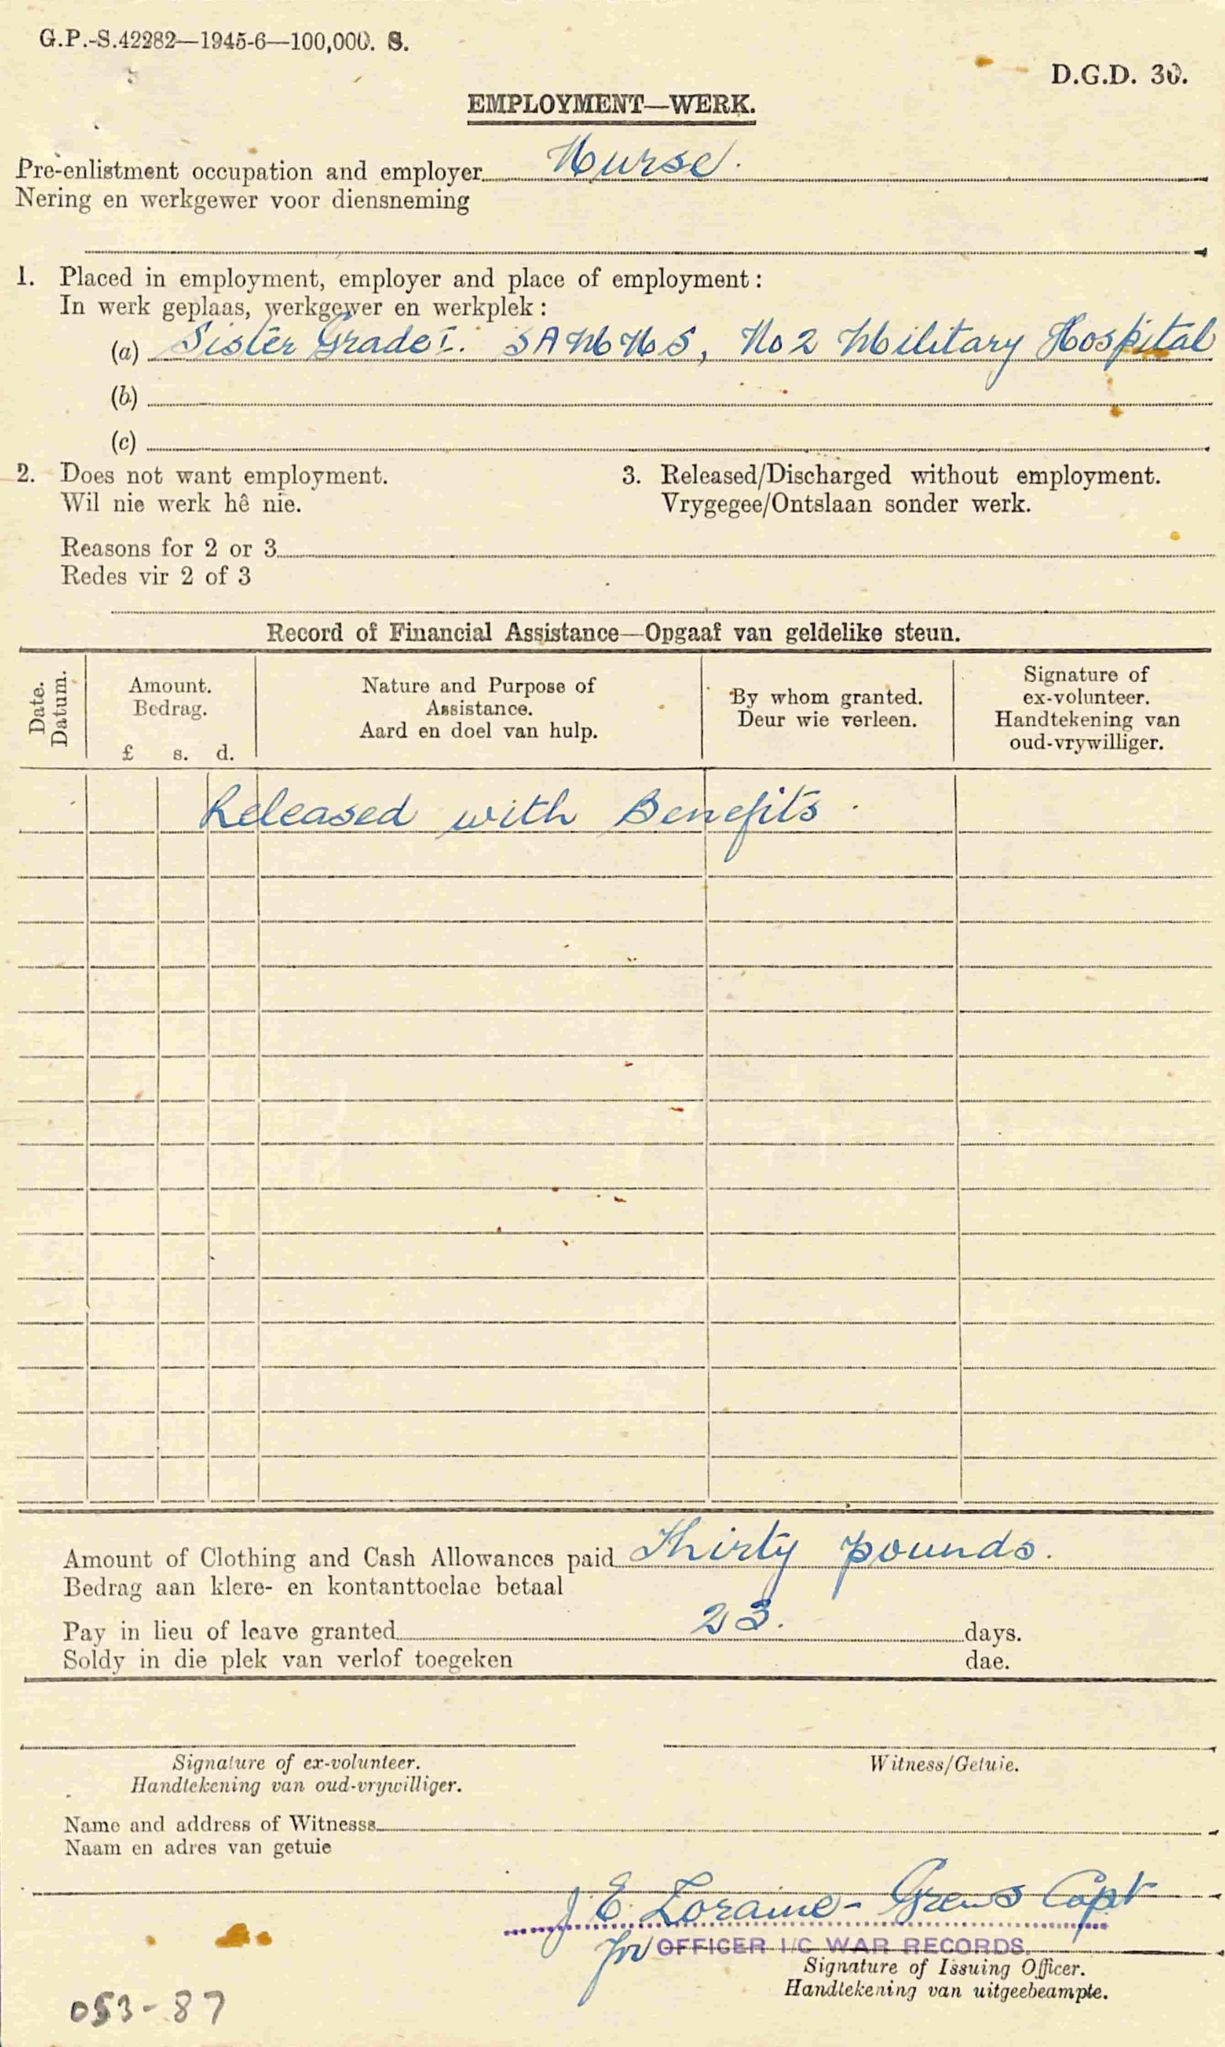 G.P.-S.42282—1945-6—100,000. S.
D.G.D. 30.
EMPLOYMENT—WERK.
Pre-enlistment occupation and employer Nurse.
Nering en werkgewer voor diensneming
1. Placed in employment, employer and place of employment:
In werk geplaas, werkgewer en werkplek:
(a) Sister Grade I. SAMNS, No 2 Military Hospital
(b)
(c)
2. Does not want employment.
Wil nie werk hê nie.
3. Released/Discharged without employment.
Vrygegee/Ontslaan sonder werk.
Reasons for 2 or 3
Redes vir 2 of 3
Record of Financial Assistance—Opgaaf van geldelike steun.
Date.
Datum.
Amount.
Bedrag.
£ s. d.
Nature and Purpose of
Assistance.
Aard en doel van hulp.
By whom granted.
Deur wie verleen.
Signature of
ex-volunteer.
Handtekening van
oud-vrywilliger.
Released with Benefits.
Amount of Clothing and Cash Allowances paid Thirty pounds.
Bedrag aan klere- en kontanttoelae betaal
Pay in lieu of leave granted 23. days.
Soldy in die plek van verlof toegeken dae.
Signature of ex-volunteer.
Handtekening van oud-vrywilliger.
Witness/Getuie.
Name and address of Witnesss
Naam en adres van getuie
J E Loraine-Grews Capt
for OFFICER I/C WAR RECORDS.
Signature of Issuing Officer.
Handtekening van uitgeebeampte.
053-87